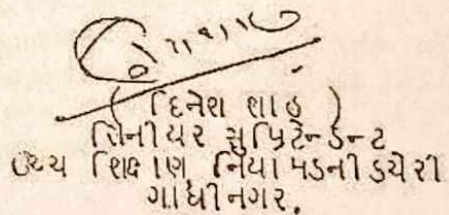 ( દિનેશ શાહ )
સિનીયર સુપ્રિટેન્ડેન્ટ
ઉચ્ચ શિક્ષણ નિયામકની કચેરી
ગાંધીનગર.